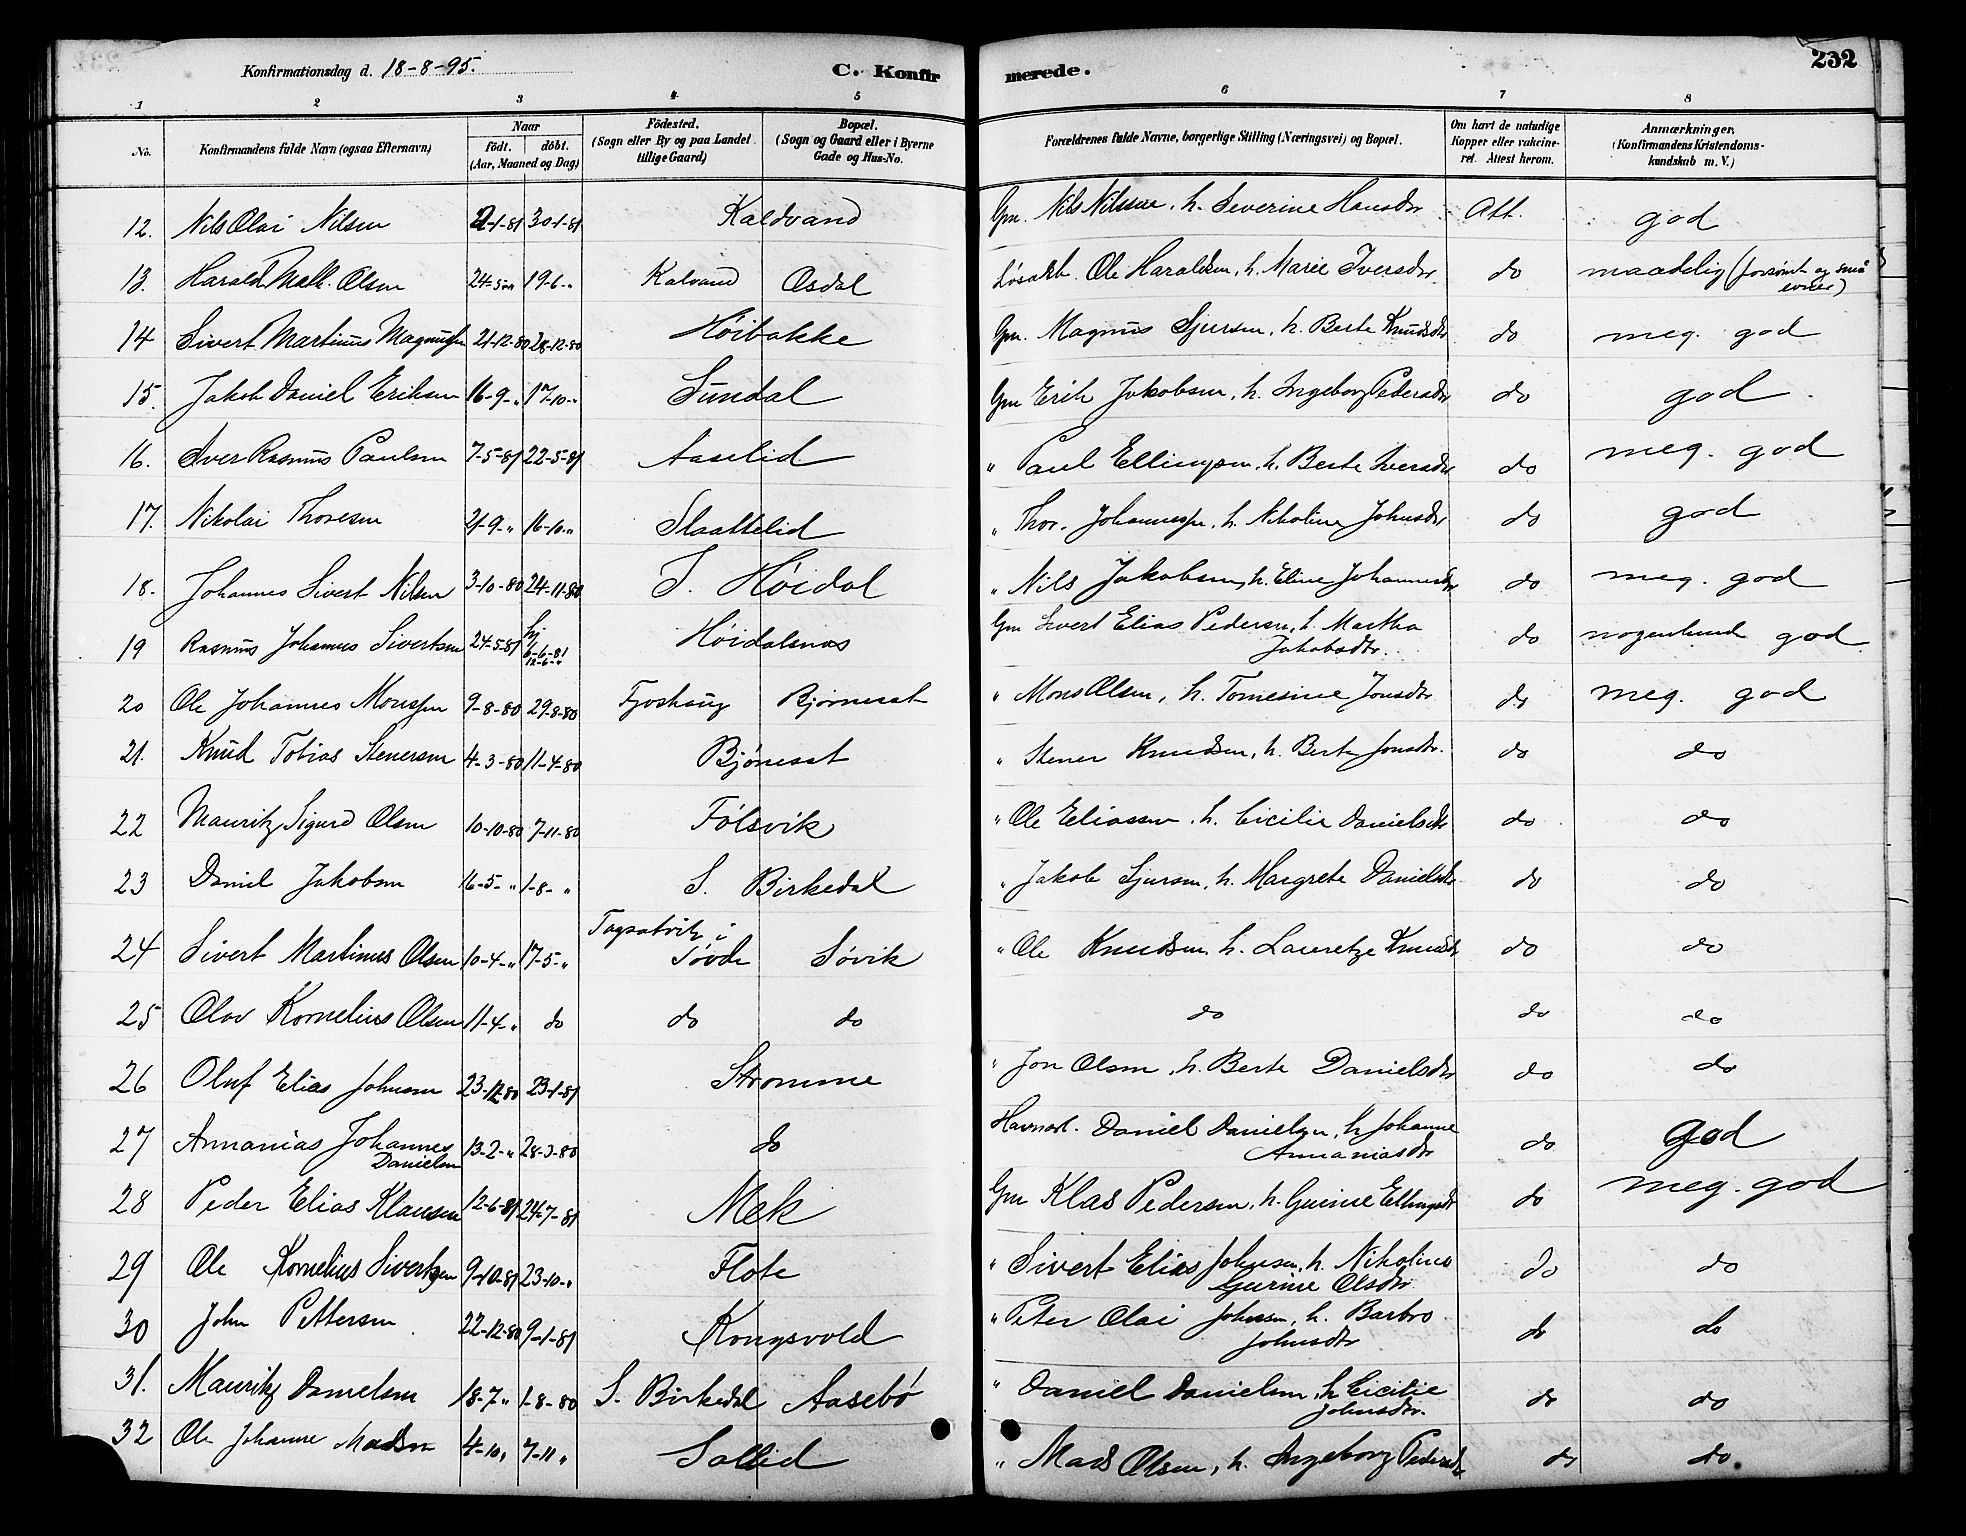 Konfirmationsdag d. 18-8-95. C. Konfirmerede. 232
1 2 3 4 5 6 7 8
No. Konfirmandens fulde Navn (ogsaa Efternavn) Naar födt. döbt. (Aar, Maaned og Dag) Födested. (Sogn eller By og paa Landet tillige Gaard) Bopæl. (Sogn og Gaard eller i Byerne Gade og Hus-No. Forældrenes fulde Navne, borgerlige Stilling (Næringsvei) og Bopæl. Om havt de naturlige Kopper eller vakcineret. Attest herom. Anmærkninger. (Konfirmandens Kristendomskundskab m. V.)
12. Nils Olai Nilsen 2-1-81 30-1-81 Kaldvand Gm. Nils Nilssen, h. Severine Hansdtr Att. god
13. Harald Math. Olsen 24-5- 19-6-" Kalvand Osdal Løsarb. Ole Haraldsen, h. Marie Iversdtr do maadelig (forsømt og små evner)
14 Sivert Martinus Magnussen 21-12-80 28-12-80 Höibakke Gm. Magnus Sjursen, h. Berte Knudsdtr do meg. god
15. Jakob Daniel Eriksen 16-9-" 17-10-" Sundal Gm Erik Jakobsen, h. Ingeborg Pedersdtr do god.
16. Iver Rasmus Paulsen 7-5-81 22-5-81 Aaselid " Paul Ellingsen, h. Berte Iversdtr do meg. god
17. Nikolai Thoresen 21-9-" 16-10-" Slaattelid " Thor. Johannessen, h. Nikoline Johnsdtr do god
18. Johannes Sivert Nilsen 3-10-80 24-11-80 I. Höidal " Nils Jakobsen, h. Eline Johannesdtr do meg. god
19 Rasmus Johannes Sivertsen 24-5-81 hj 6-6-81 12-6-" Höidalsnes Gm Sivert Elias Pedersen, h. Martha Jakobsdtr. do nogenlunde god
20 Ole Johannes Monssen 9-8-80 29-8-80 Fjoshaug Bjørneset " Mons Olsen, h. Tomesine Jonsdtr do meg. god
21. Knud Tobias Stenersen 4-3-80 11-4-80 Bjöneset " Stener Knudsen, h. Berte Jonsdtr. do do
22 Mauritz Sigurd Olsen 10-10-80 7-11-80 Fölsvik " Ole Eliassen, h. Cicilie Danielsdtr do do
23 Daniel Jakobsen 16-5-" 1-8-" S. Birkedal " Jakob Sjursen, h. Margrete Danielsdtr do do
24 Sivert Martinus Olsen 10-4-" 17-5-" Tagsatvik i Sövde Sövik " Ole Knudsen h. Lauretze Knudsdtr do do
25 Olav Kornelius Olsen 11-4-" do do do do do do
26 Oluf Elias Johnsen 23-12-80 23-1-81 Strømme " Jon Olsen, h. Berte Danielsdtr do do
27 Annanias Johannes Danielsen 13-2-" 28-3-80 do Havnarb. Daniel Danielsen, h Johanne Annaniasdtr do god
28 Peder Elias Klausen 12-6-81 24-7-81 Mek Gm Klas Pedersen, h. Gurine Ellingsdtr do meg. god
29 Ole Kornelius Sivertsen 9-10-81 23-10-" Flote " Sivert Elias Johnsen, h. Nikoline Gurine Olsdtr do do
30 John Pettersen 22-12-80 9-1-81 Kongsvold " Peter Olai Johnsen, h. Barbro Johnsdtr do do
31. Mauritz Danielsen 18-7-" 1-8-80 S. Birkedal Aasebö " Daniel Danielsen, h Cicilie Johnsdtr. do do
32 Ole Johanne Madsen 4-10" 7-11" Sollid " Mads Olsen, h. Ingeborg Pedersdtr do do